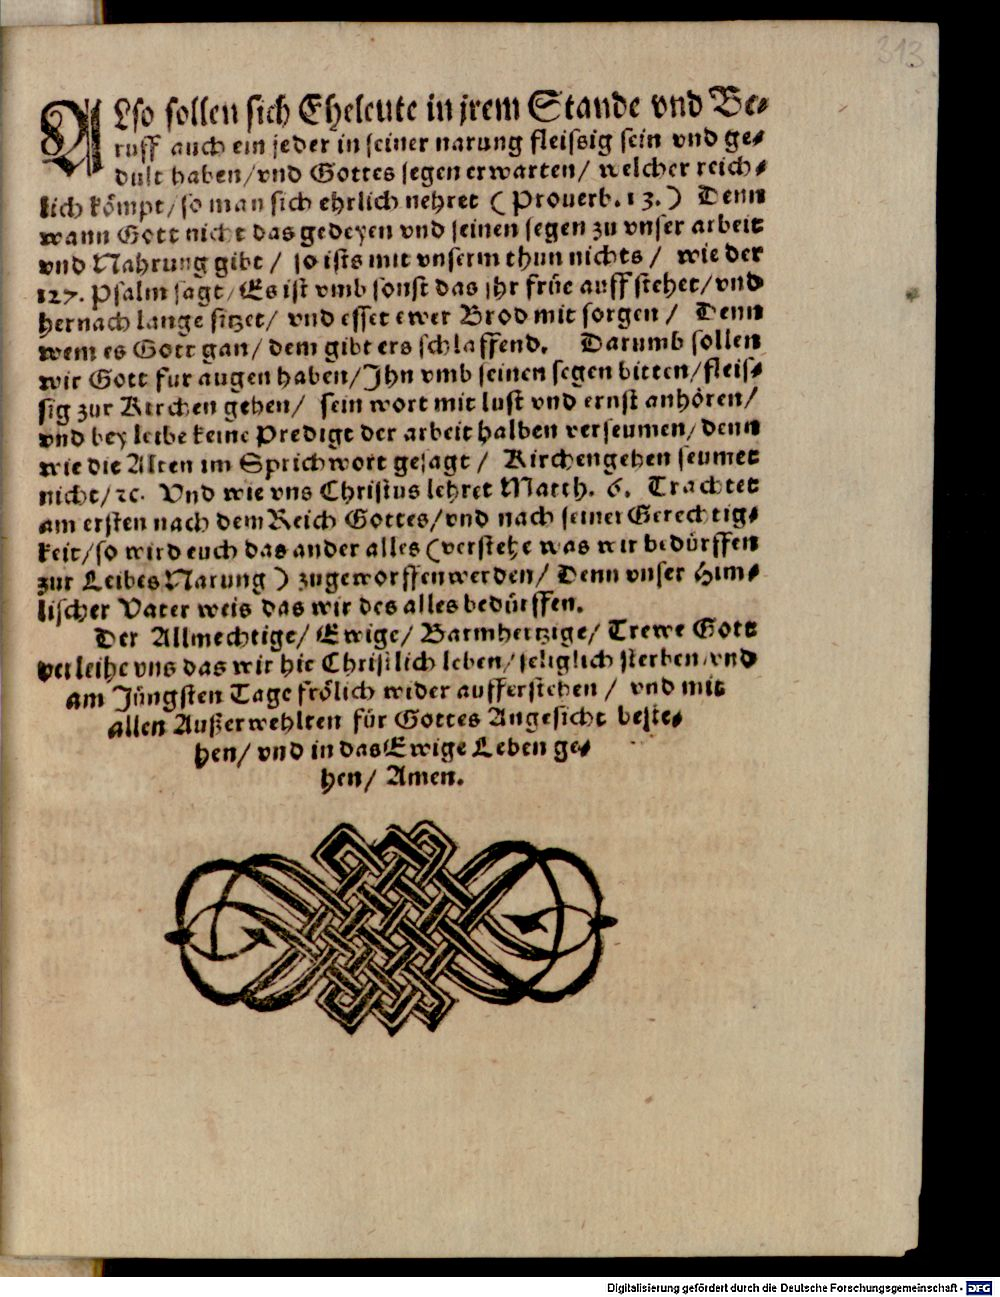 313
ALso sollen sich Eheleute in jrem Stande vnd Be-
ruff auch ein jeder in seiner narung fleissig sein vnd ge-
dult haben/vnd Gottes segen erwarten/ welcher reich-
lich kömpt/so man sich ehrlich nehret (Prouerb. 13.) Denn
wann Gott nicht das gedeyen vnd seinen segen zu vnser arbeit
vnd Nahrung gibt / so ists mit vnserm thun nichts / wie der
127. Psalm sagt/ Es ist vmb sonst das jhr früe auff stehet/vnd
hernach lange sitzet/ vnd esset ewer Brod mit sorgen / Denn
wem es Gott gan/ dem gibt ers schlaffend. Darumb sollen
wir Gott fur augen haben/Jhn vmb seinen segen bitten/fleis-
sig zur Kirchen gehen/ sein wort mit lust vnd ernst anhören/
vnd bey leibe keine Predigt der arbeit halben verseumen/ denn
wie die Alten im Sprichwort gesagt / Kirchengehen seumet
nicht/ꝛc. Vnd wie vns Christus lehret Matth. 6. Trachtet
am ersten nach dem Reich Gottes/vnd nach seiner Gerechtig-
keit/so wird euch das ander alles (verstehe was wir bedürffen
zur Leibes Narung) zugeworffen werden/ Denn vnser Him-
lischer Vater weis das wir des alles bedürffen.
Der Allmechtige/ Ewige/ Barmhertzige/ Trewe Gott
verleihe vns das wir hie Christlich leben/ seliglich sterben/vnd
am Jüngsten Tage frölich wider aufferstehen / vnd mit
allen Außerwehlten für Gottes Angesicht beste-
hen/ vnd in das Ewige Leben ge-
hen/ Amen.
Digitalisierung gefördert durch die Deutsche Forschungsgemeinschaft - DFG